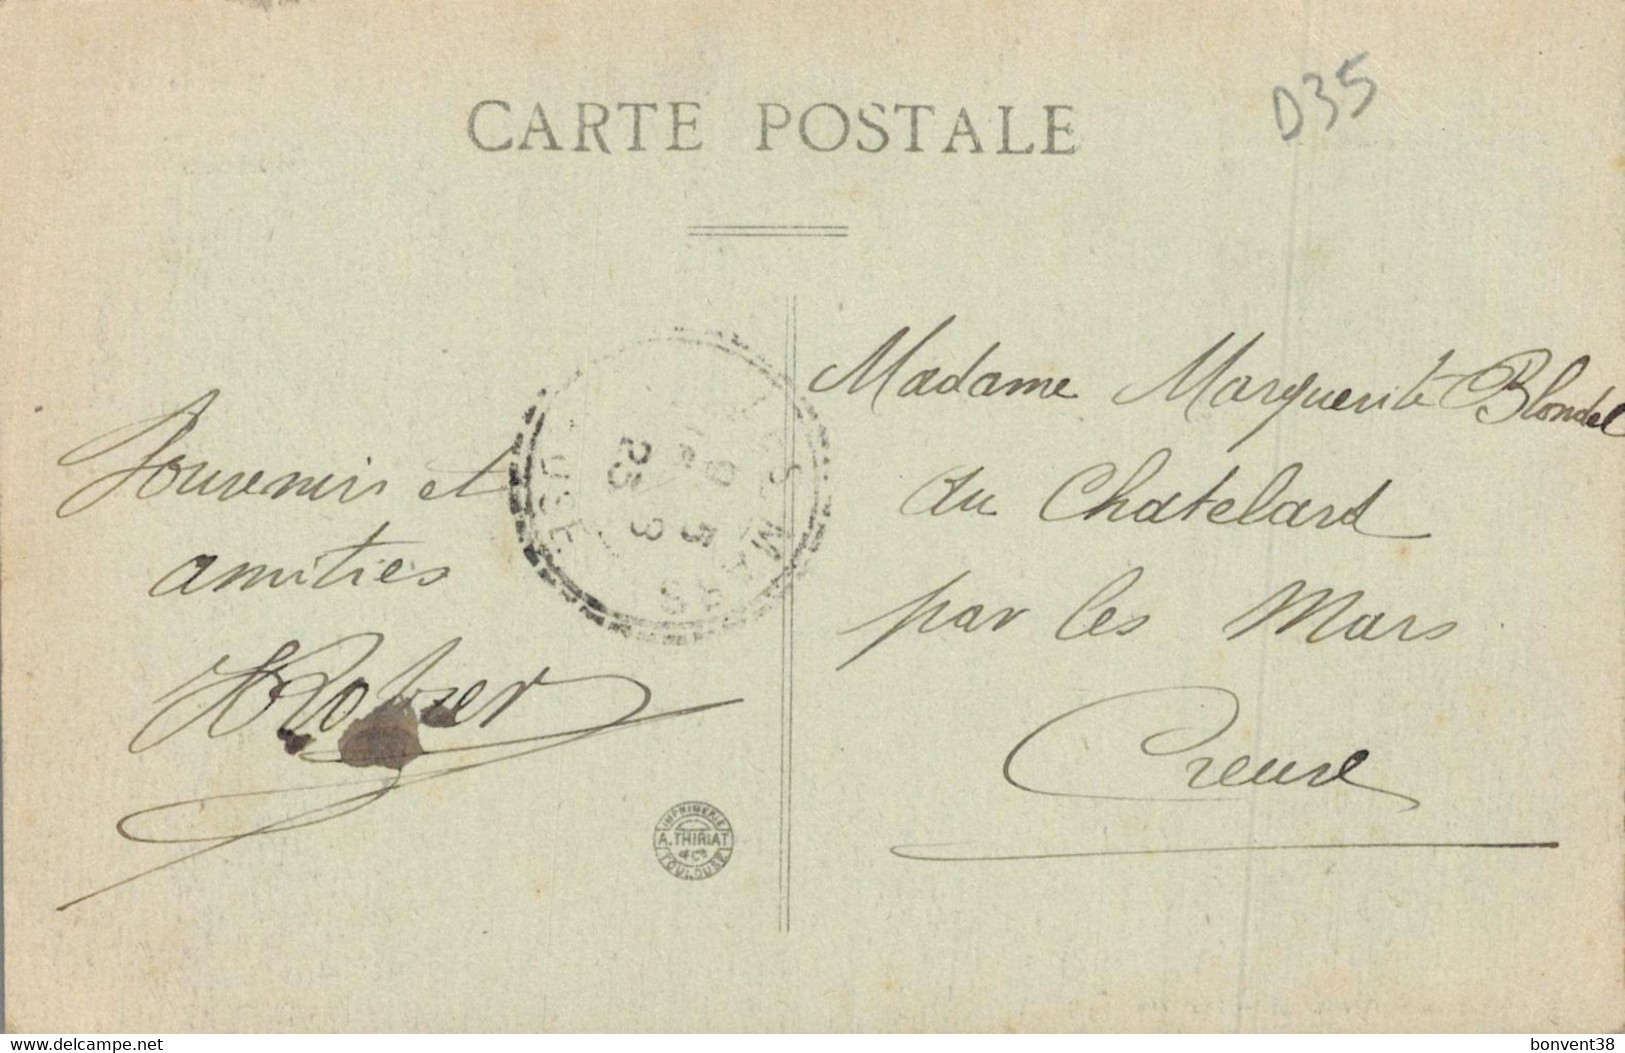 CARTE POSTALE
D35
Souvenir et
amitiés
Madame Marguerite Blondel
au Chatelard
par les Mars
Creuse
MARS
IMPRIMERIE
A. THIRIAT
& Cie
TOULOUSE
www.delcampe.net
bonvent38